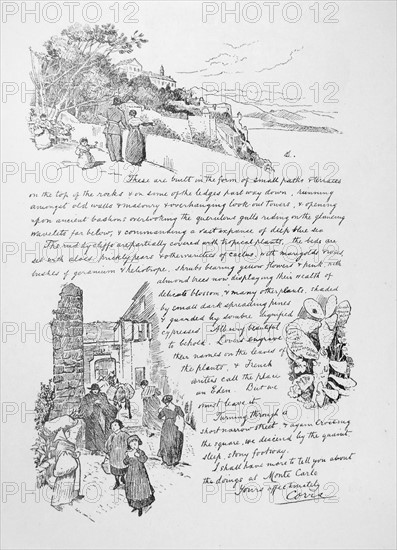 These are built in the form of small paths & terraces
on the top of the rocks & on some of the ledges part way down, running
amongst old walls & masonry & overhanging look out towers, & opening
upon ancient bastions overlooking the querulous gulls riding on the glancing
wavelets far below, & commanding a vast expanse of deep blue sea
The rugged cliffs are partially covered with tropical plants, the beds are
set with aloes, prickly pears & other varieties of cactus, with marigolds &
bushes of geranium & heliotrope, shrub bearing yellow flowers & pink, with
almond trees now displaying their wealth of
delicate blossom, & many other plants, shaded
by small dark spreading pines
& guarded by sombre
cypresses. All very beautiful
to behold. Lovers engrave
their names on the leaves of
the plants & French
writers call the place
an Eden. But we
must leave it.
Turning through a
short narrow street & again crossing
the square, we descend by the quaint
steep, stony footway.
I shall have more to tell you about
the doings at Monte Carlo
Yours affectionately
PHOTO12